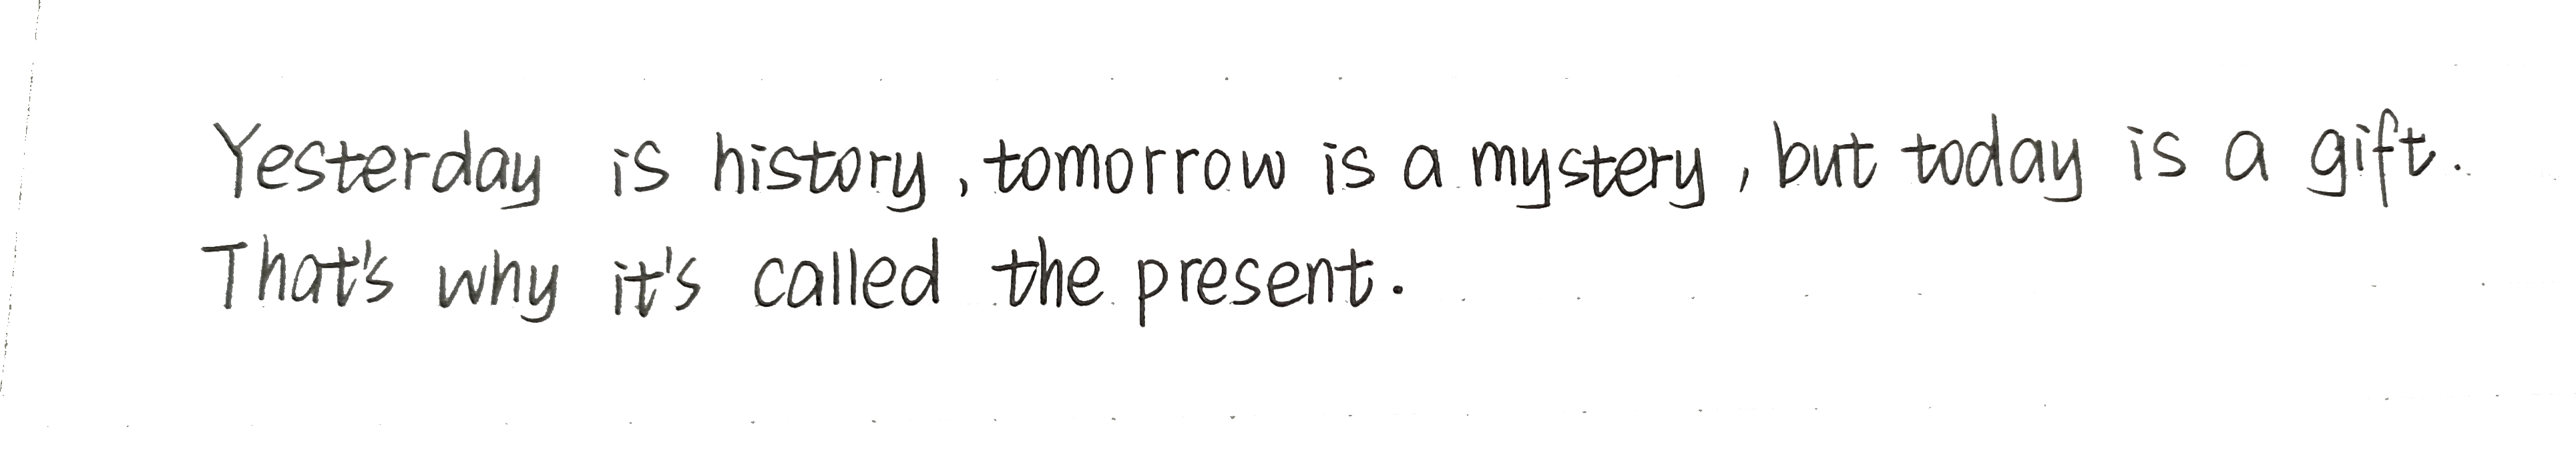 Yesterday is history, tomorrow is a mystery, but today is a gift.
That's why it's called the present.